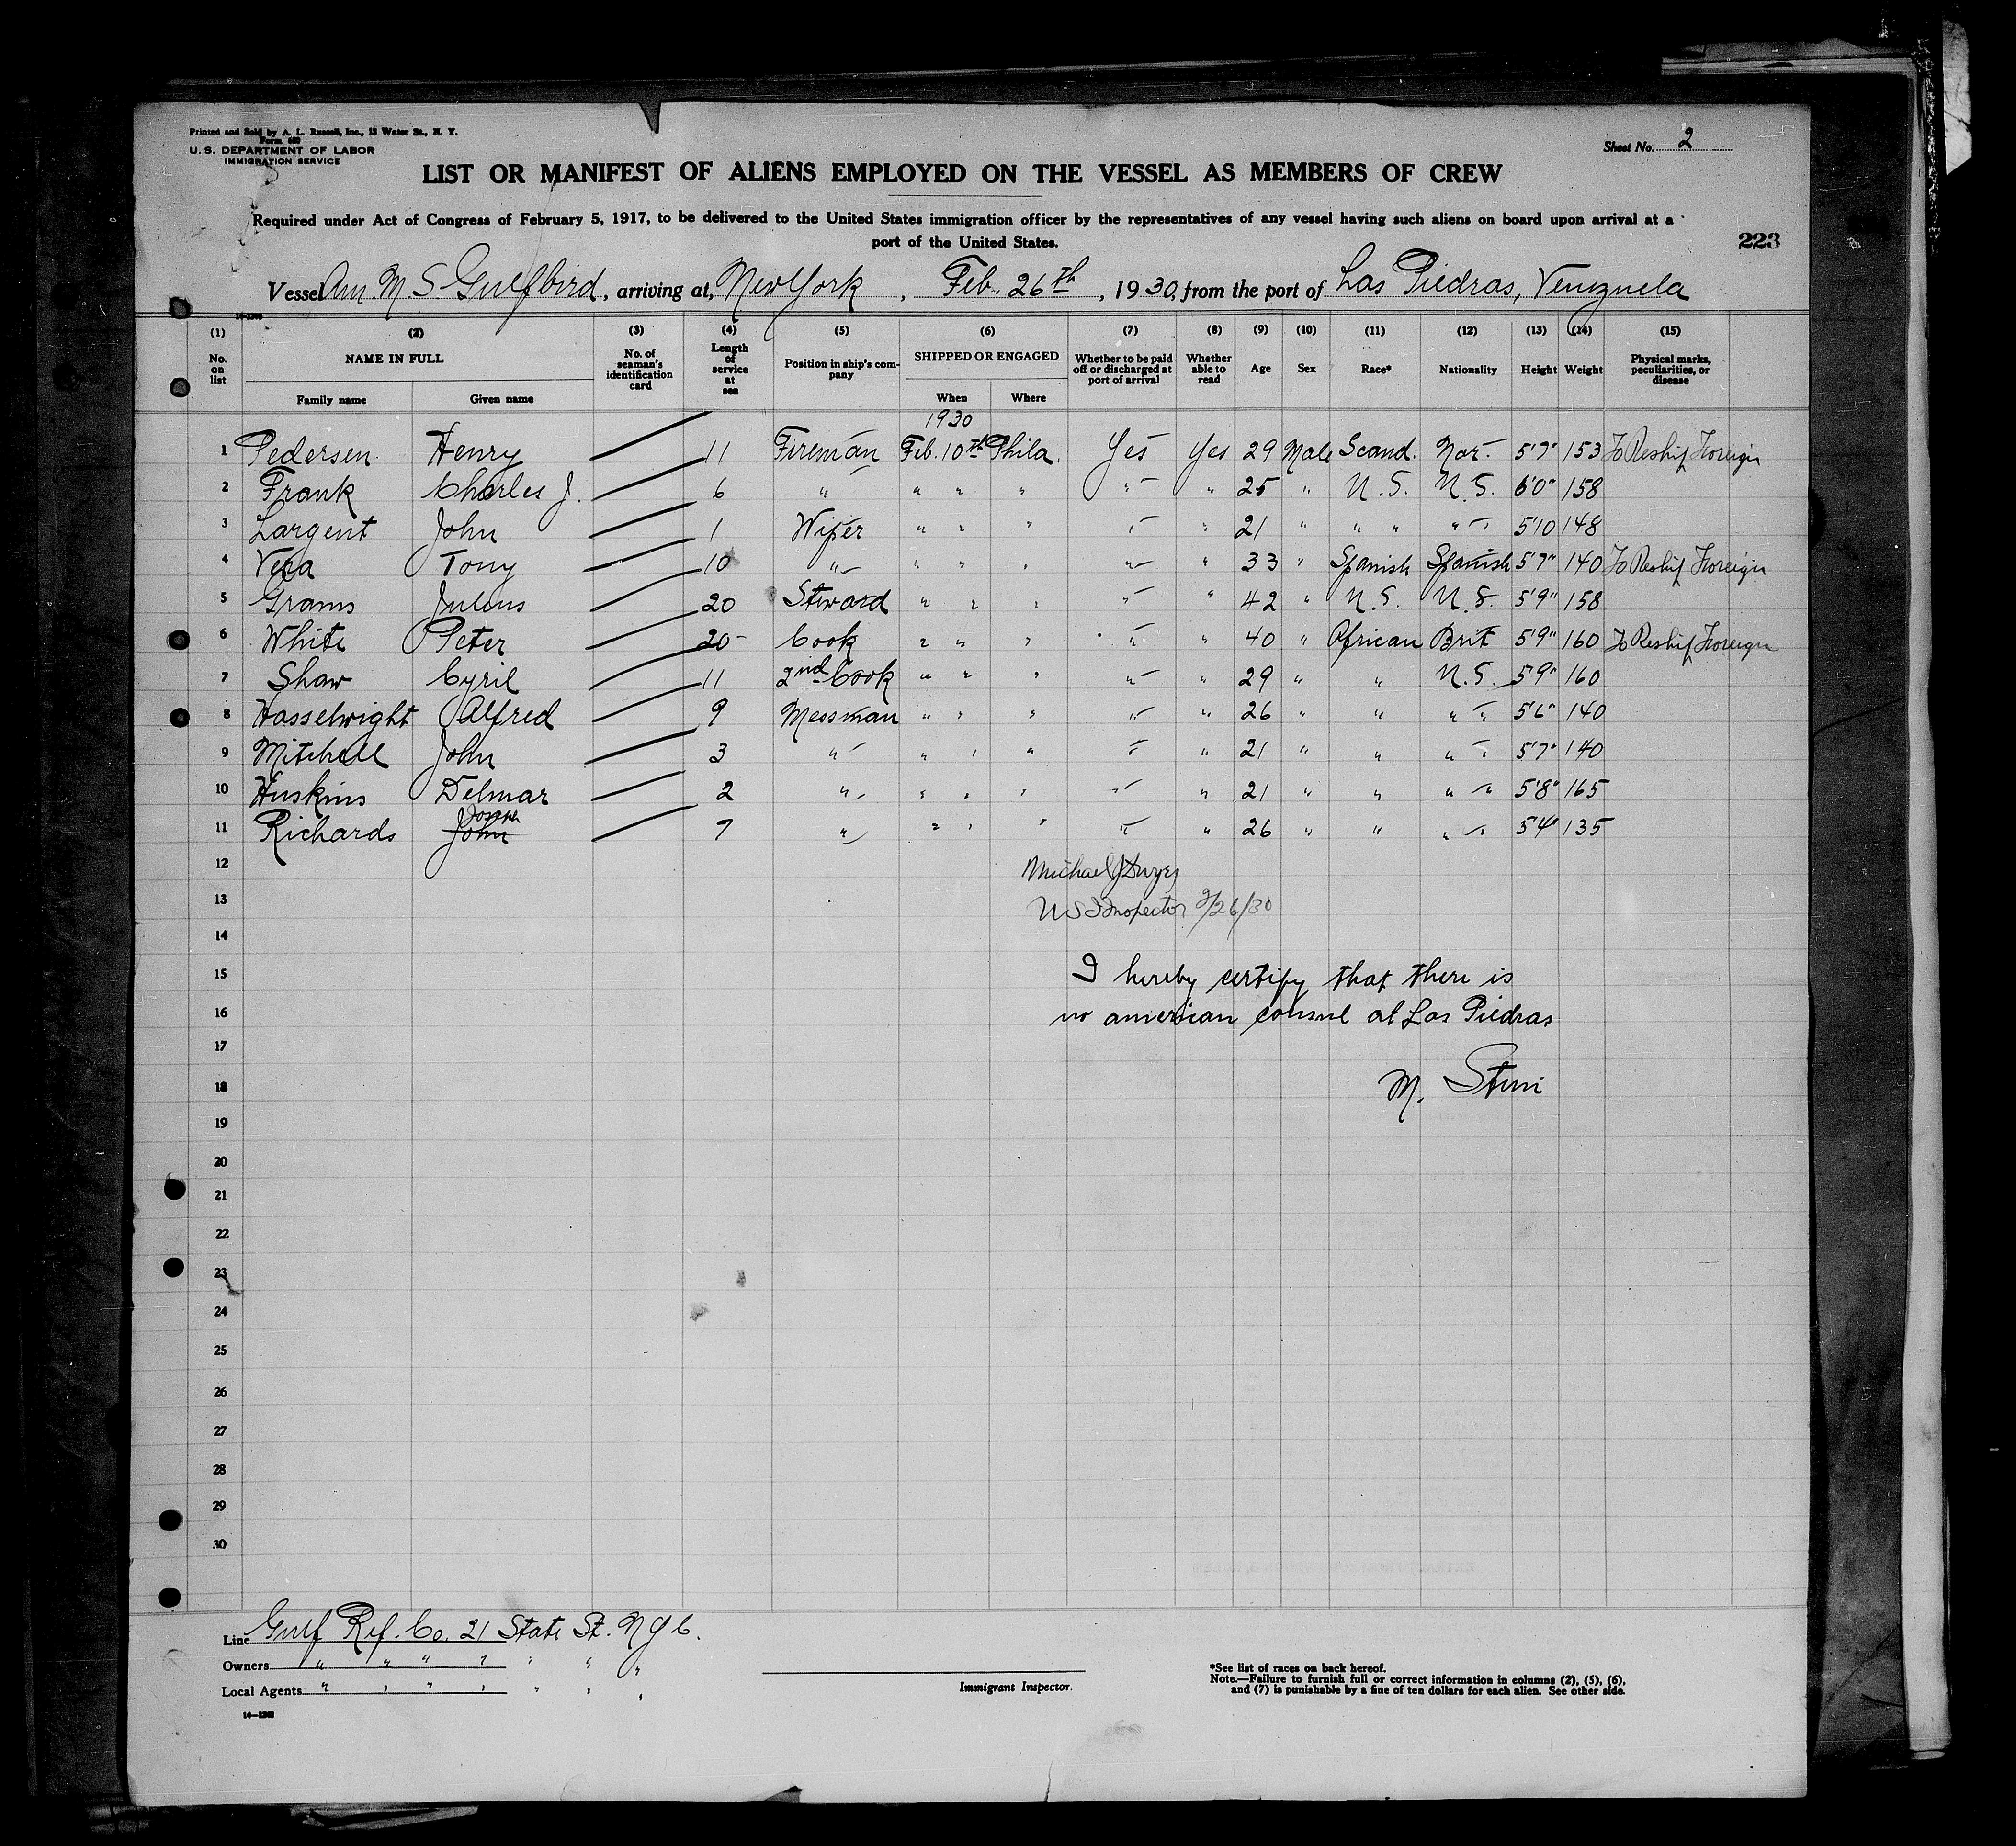 Printed and Sold by A. L. Russell, Inc., 13 Water St., N. Y.
Form 680
U. S. DEPARTMENT OF LABOR
IMMIGRATION SERVICE
Sheet No. 2
LIST OR MANIFEST OF ALIENS EMPLOYED ON THE VESSEL AS MEMBERS OF CREW
Required under Act of Congress of February 5, 1917, to be delivered to the United States immigration officer by the representatives of any vessel having such aliens on board upon arrival at a
port of the United States.
223
Vessel Am. M. S. Gulfbird, arriving at, New York, Feb. 26th, 1930, from the port of Las Piedras, Venezuela
14-1240
(1) (2) (3) (4) (5) (6) (7) (8) (9) (10) (11) (12) (13) (14) (15)
No. on list NAME IN FULL No. of seaman's identification card Length of service at sea Position in ship's company SHIPPED OR ENGAGED Whether to be paid off or discharged at port of arrival Whether able to read Age Sex Race* Nationality Height Weight Physical marks, peculiarities, or disease
Family name Given name When Where
1930
1 Pedersen Henry 11 Fireman Feb. 10th Phila. Yes Yes 29 Male Scand. Nor. 5'7" 153 To Reship Foreign
2 Frank Charles J. 6 " " " " " " 25 " U.S. U.S. 6'0" 158
3 Largent John 1 Wiper " " " " " 21 " " " " " 5'10 148
4 Vera Tony 10 " " " " " " 33 " Spanish Spanish 5'7" 140 To Reship Foreign
5 Grams Julius 20 Steward " " " " " 42 " U.S. U.S. 5'9" 158
6 White Peter 20 Cook " " " " " 40 " African Brit 5'9" 160 To Reship Foreign
7 Shaw Cyril 11 2nd Cook " " " " " 29 " " U.S. 5'9" 160
8 Hasselwright Alfred 9 Messman " " " " " 26 " " " " 5'6" 140
9 Mitchell John 3 " " " " " " 21 " " " " 5'7" 140
10 Huskins Delmar 2 " " " " " " 21 " " " " 5'8" 165
Joseph
11 Richards John 7 " " " " " " 26 " " " " 5'4" 135
12 Michael J
13 U S I Inspector 2/26/30
14
15 I hereby certify that there is
16 no american consul at Las Piedras
17
18 M.
19
20
21
22
23
24
25
26
27
28
29
30
Line Gulf Ref. Co. 21 State St. N Y C.
Owners " " " " " " "
Local Agents " " " " " " "
Immigrant Inspector.
*See list of races on back hereof.
Note.—Failure to furnish full or correct information in columns (2), (5), (6),
and (7) is punishable by a fine of ten dollars for each alien. See other side.
14—1240